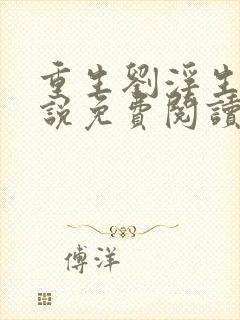 重生劉淫生
說免費閱讀
傅洋